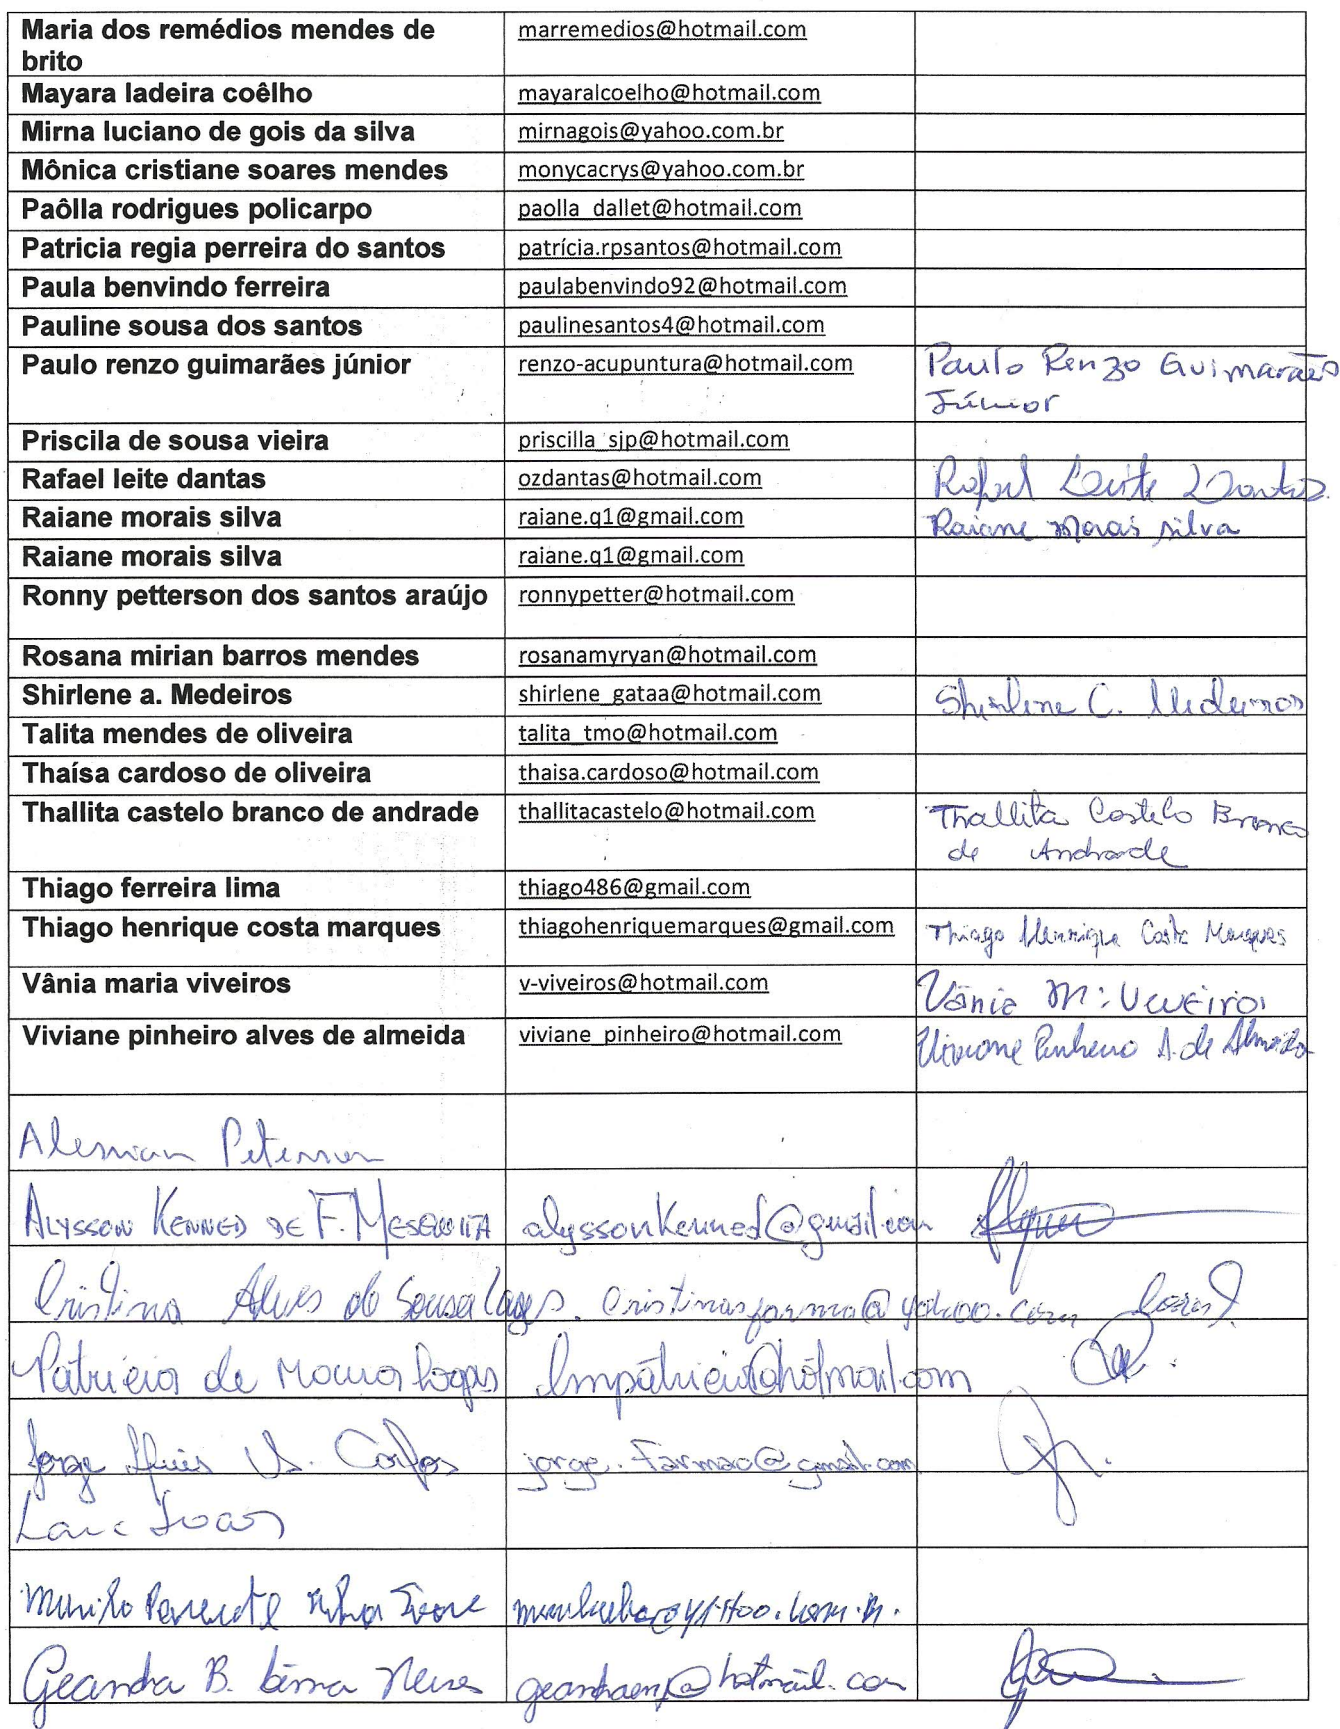 Maria dos remédios mendes de marremedios@hotmail.com
brito
Mayara ladeira coêlho mayaralcoelho@hotmail.com
Mirna luciano de gois da silva mirnagois@yahoo.com.br
Mônica cristiane soares mendes monycacrys@yahoo.com.br
Paôlla rodrigues policarpo paolla_dallet@hotmail.com
Patricia regia perreira do santos patrícia.rpsantos@hotmail.com
Paula benvindo ferreira paulabenvindo92@hotmail.com
Pauline sousa dos santos paulinesantos4@hotmail.com
Paulo renzo guimarães júnior renzo-acupuntura@hotmail.com Paulo Renzo Guimarães
Júnior
Priscila de sousa vieira priscilla_sjp@hotmail.com
Rafael leite dantas ozdantas@hotmail.com Rafael Leite Dantas
Raiane morais silva raiane.q1@gmail.com Raiane Morais silva
Raiane morais silva raiane.q1@gmail.com
Ronny petterson dos santos araújo ronnypetter@hotmail.com
Rosana mirian barros mendes rosanamyryan@hotmail.com
Shirlene a. Medeiros shirlene_gataa@hotmail.com Shirlene C. Medeiros
Talita mendes de oliveira talita_tmo@hotmail.com
Thaísa cardoso de oliveira thaisa.cardoso@hotmail.com
Thallita castelo branco de andrade thallitacastelo@hotmail.com Thallita Castelo Branco
de Andrade
Thiago ferreira lima thiago486@gmail.com
Thiago henrique costa marques thiagohenriquemarques@gmail.com Thiago Henrique Costa Marques
Vânia maria viveiros v-viveiros@hotmail.com Vânia M. Viveiros
Viviane pinheiro alves de almeida viviane_pinheiro@hotmail.com Viviane Pinheiro A. de Almeida
ALYSSON KENNED DE F. MESQUITA alyssonkenned@gmail.com
Cristina Alves de Sousa Lages. cristinasfarma@yahoo.com
Patrícia de Moura
Jorge jorge.farmac@gmail.com
Geandra B.